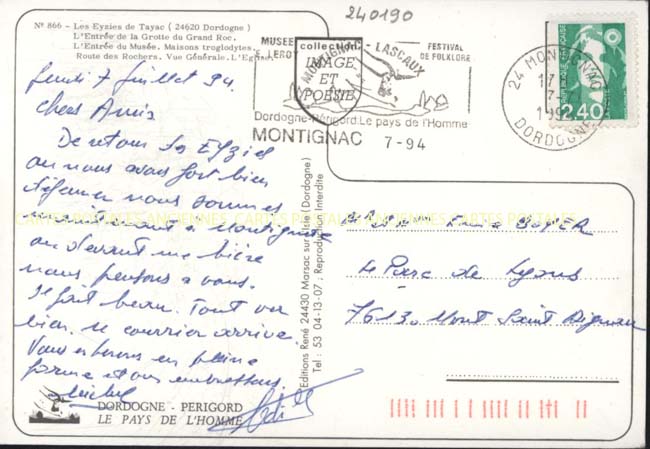 240190
N° 866 - Les Eyzies de Tayac (24620 Dordogne)
L'Entrée de la Grotte du Grand Roc.
L'Entrée du Musée. Maisons troglodytes.
Route des Rochers. Vue Générale. L'Eglise.
collection
IMAGE
ET
POÉSIE
MUSEE
E. LEROY
MONTIGNAC - LASCAUX
FESTIVAL
DE FOLKLORE
Dordogne-Périgord. Le pays de l'Homme
MONTIGNAC 7-94
24 MONTIGNAC
17 H
7-
199
DORDOGNE
2,40
Jeudi 7 Juillet 94.
Chers Amis
De retour des EYZIES
où nous avons fort bien
déjeuner nous sommes
maintenant a Montignac
où devant une bière
nous pensons a vous.
Il fait beau. Tout va
bien. le courrier arrive.
Vous etes en pleine
forme et vous embrassons.
Michel
CARTES POSTALES ANCIENNES CARTES POSTALES ANCIENNES CARTES POSTALES
Editions René 24430 Marsac sur l'Isle (Dordogne)
Tél : 53 04-13-07 ; Reproduction Interdite
BOYER
Le Parc de Lyons
76130 Mont Saint Aignan
DORDOGNE - PERIGORD
LE PAYS DE L'HOMME